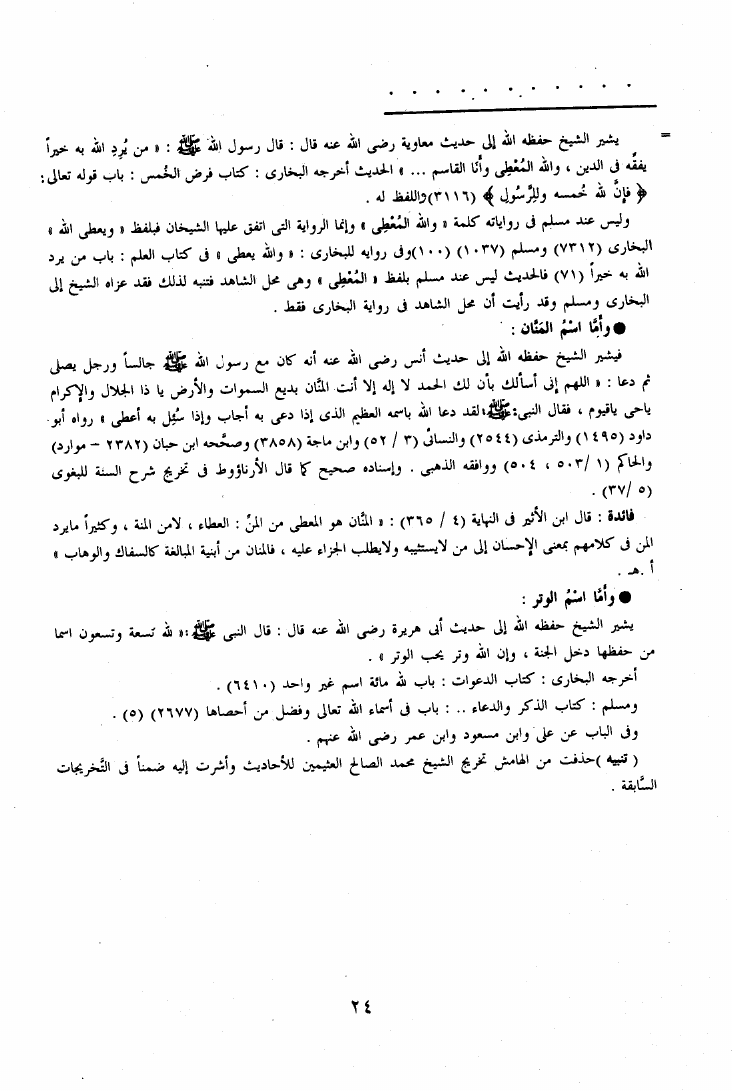 = يشير الشيخ حفظه الله إلى حديث معاوية رضى الله عنه قال : قال رسول الله ﷺ : « من يُرِدِ الله به خيراً
يفقّه فى الدين ، والله المُعْطِى وأنا القاسم ... » الحديث أخرجه البخارى : كتاب فرض الخُمس : باب قوله تعالى :
﴿ فإنَّ لله خُمسه وللرَّسُولِ ﴾ (٣١١٦) واللفظ له .
وليس عند مسلم فى رواياته كلمة « والله المُعْطِى » وإنما الرواية التى اتفق عليها الشيخان فبلفظ « ويعطى الله »
البخارى (٧٣١٢) ومسلم (١٠٣٧) (١٠٠) وفى روايه للبخارى : « والله يعطى » فى كتاب العلم : باب من يرد
الله به خيراً (٧١) فالحديث ليس عند مسلم بلفظ « المُعْطِى » وهى محل الشاهد فتنبه لذلك فقد عزاه الشيخ إلى
البخارى ومسلم وقد رأيت أن محل الشاهد فى رواية البخارى فقط .
● وأمَّا اسْمُ المَنَّان :
فيشير الشيخ حفظه الله إلى حديث أنس رضى الله عنه أنه كان مع رسول الله ﷺ جالساً ورجل يصلى
ثم دعا : « اللهم إنى أسألك بأن لك الحمد لا إله إلا أنت المنَّان بديع السموات والأرض يا ذا الجلال والإكرام
ياحى ياقيوم ، فقال النبى ﷺ : لقد دعا الله باسمه العظيم الذى إذا دعى به أجاب وإذا سُئِل به أعطى » رواه أبو
داود (١٤٩٥) والترمذى (٢٥٤٤) والنسائى (٣ / ٥٢) وابن ماجة (٣٨٥٨) وصحَّحه ابن حبان (٢٣٨٢ – موارد)
والحاكم (١ /٥٠٣ ، ٥٠٤) ووافقه الذهبى . وإسناده صحيح كما قال الأرناؤوط فى تخريج شرح السنة للبغوى
(٥ /٣٧) .
فائدة : قال ابن الأثير فى النهاية (٤ / ٣٦٥) : « المنَّان هو المعطى من المنّ : العطاء ، لامن المنة ، وكثيراً مايرد
المن فى كلامهم بمعنى الإحسان إلى من لايستثيبه ولايطلب الجزاء عليه ، فالمنان من أبنية المبالغة كالسفاك والوهاب »
أ .هـ .
● وأمَّا اسْمُ الوتر :
يشير الشيخ حفظه الله إلى حديث أبى هريرة رضى الله عنه قال : قال النبى ﷺ : « لله تسعة وتسعون اسما
من حفظها دخل الجنة ، وإن الله وتر يحب الوتر » .
أخرجه البخارى : كتاب الدعوات : باب لله مائة اسم غير واحد (٦٤١٠) .
ومسلم : كتاب الذكر والدعاء .. : باب فى أسماء الله تعالى وفضل من أحصاها (٢٦٧٧) (٥) .
وفى الباب عن على وابن مسعود وابن عمر رضى الله عنهم .
( تنبيه ) حذفت من الهامش تخريج الشيخ محمد الصالح العثيمين للأحاديث وأشرت إليه ضمناً فى التَّخريجات
السَّابقة .
٢٤